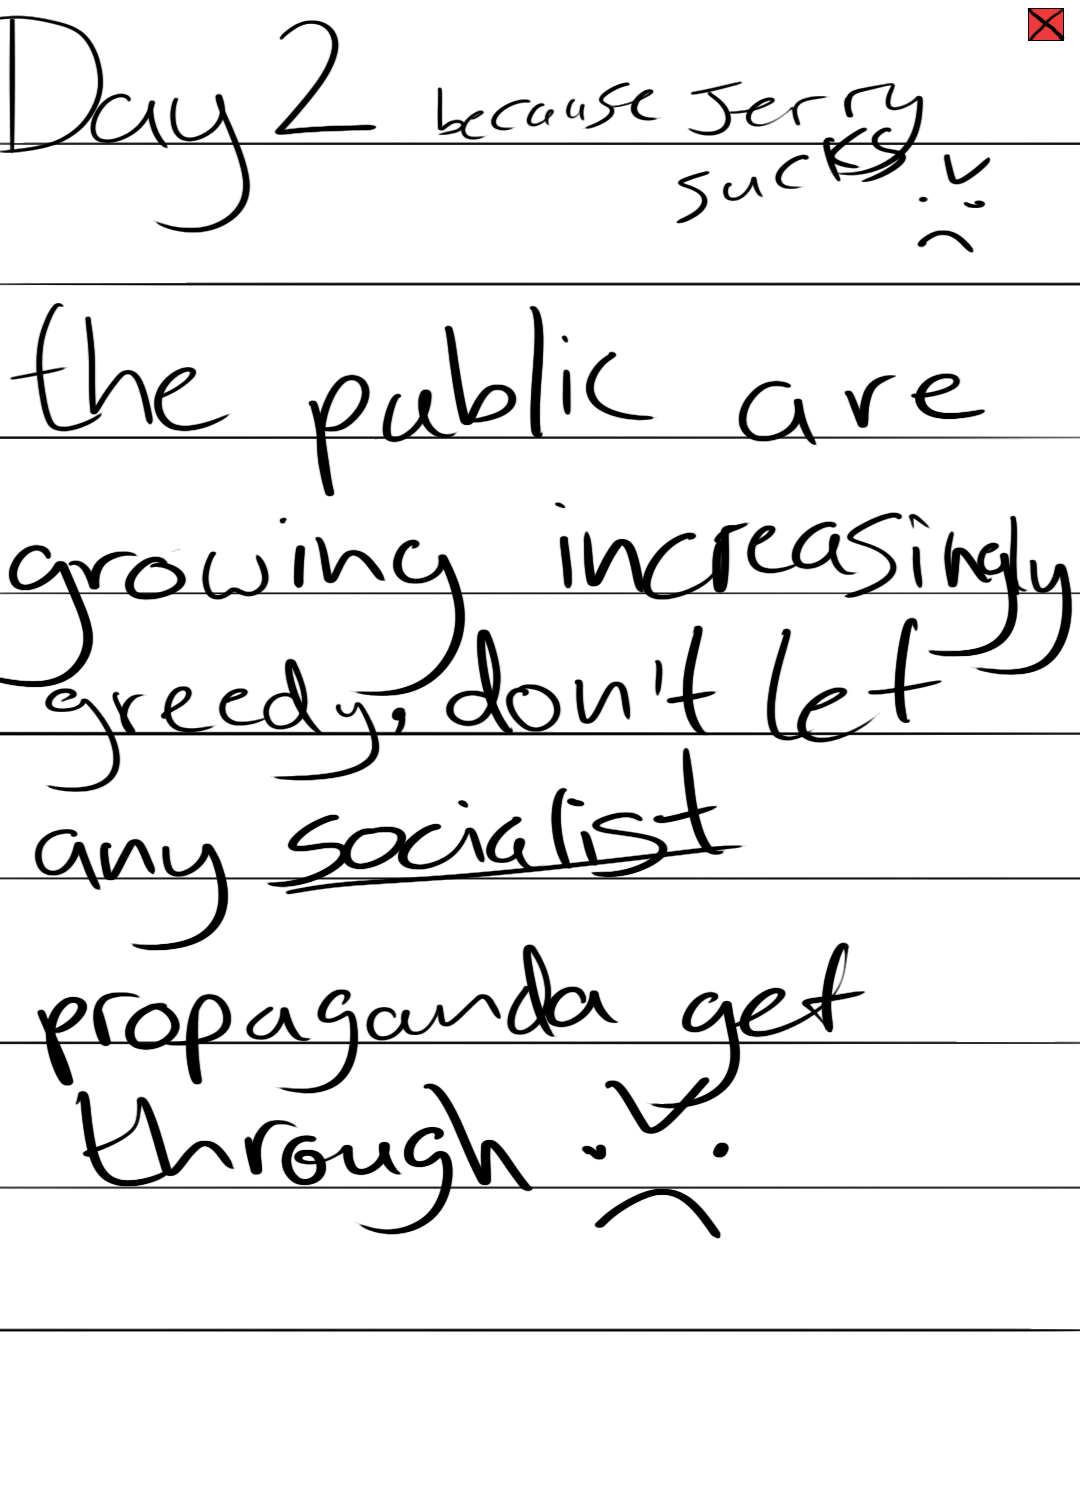 Day 2 because Jerry
sucks
the public are
growing increasingly
greedy, don't let
any socialist
propaganda get
through